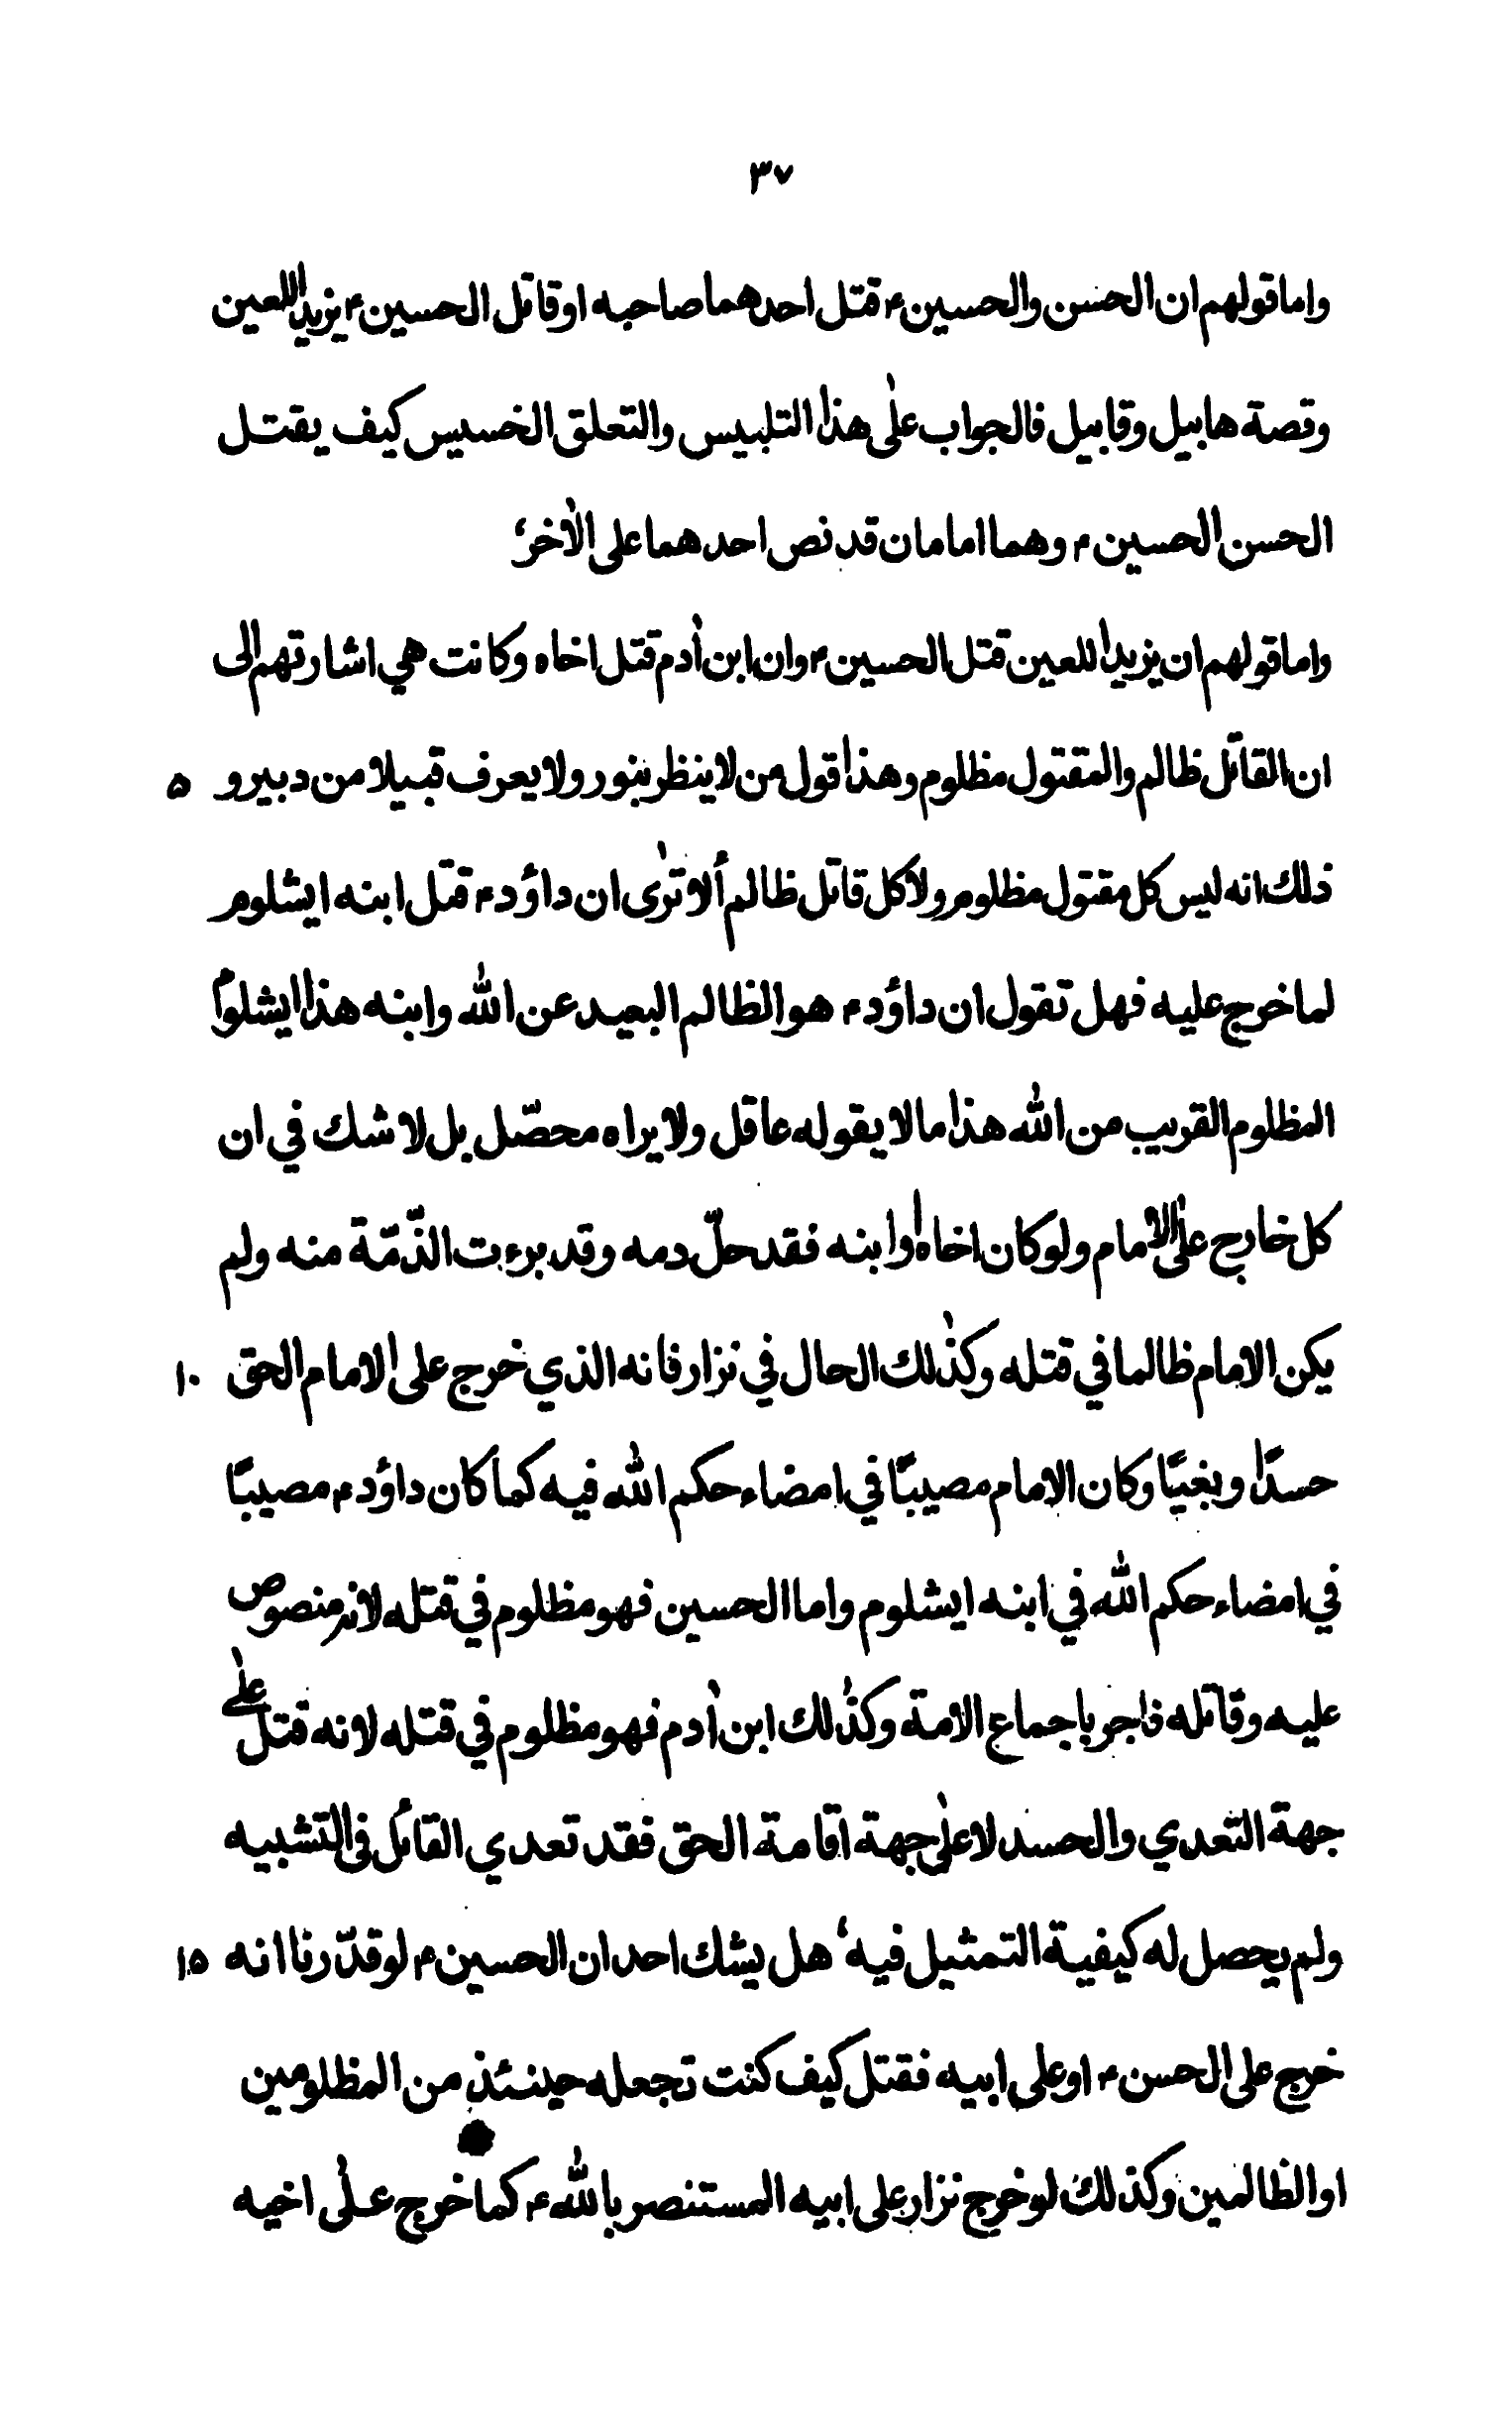 ٣٧
واما قولهم ان الحسن والحسين ع قتل احدهما صاحبه او قاتل الحسين ع يزيد اللعين
وقصة هابيل وقابيل فالجواب على هذا التلبيس والتعلق الخسيس كيف يقتل
الحسن الحسين ع وهما امامان قد نص احدهما على الآخر،
واما قولهم ان يزيد اللعين قتل الحسين ع وان ابن آدم قتل اخاه وكانت هي اشارتهم الى
ان القاتل ظالم والمقتول مظلوم وهذا قول من لا ينظر بنور ولا يعرف قبيلا من دبير و ۵
ذلك انه ليس كل مقتول مظلوم ولا كل قاتل ظالم ألا ترى ان داؤد ع قتل ابنه ايشلوم
لما خرج عليه فهل تقول ان داؤد ع هو الظالم البعيد عن الله وابنه هذا ايشلوم
المظلوم القريب من الله هذا ما لا يقوله عاقل ولا يراه محصّل بل لا شك في ان
كل خارج على الامام ولو كان اخاه او ابنه فقد حلّ دمه وقد برءت الذّمّة منه ولم
يكن الامام ظالما في قتله وكذلك الحال في نزار فانه الذي خرج على الامام الحق ١٠
حسدًا وبغيًا وكان الامام مصيبًا في امضاء حكم الله فيه كما كان داؤد ع مصيبًا
في امضاء حكم الله في ابنه ايشلوم واما الحسين فهو مظلوم في قتله لانه منصوص
عليه وقاتله فاجر باجماع الامة وكذلك ابن آدم فهو مظلوم في قتله لانه قتل على
جهة التعدي والحسد لا على جهة اقامة الحق فقد تعدي القائل في التشبيه
ولم يحصل له كيفية التمثيل فيه، هل يشك احد ان الحسين ع لو قدّرنا انه ١۵
خرج على الحسن ع او على ابيه فقتل كيف كنت تجعله حينئذ من المظلومين
او الظالمين وكذلك لو خرج نزار على ابيه المستنصر بالله ع كما خرج على اخيه